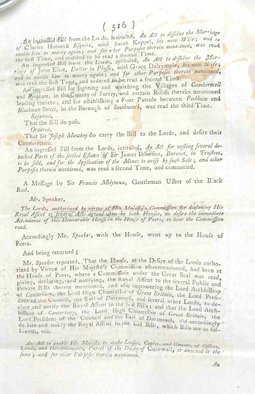 ( 516 )
An ingrossed Bill from the Lords, intituled, An Act to dissolve the Marriage
of Charles Horneck Esquire, with Sarah Keppel, his now Wife; and to
enable him to marry again; and for other Purposes therein mentioned, was read
the first Time, and ordered to be read a second Time.
An ingrossed Bill from the Lords, intituled, An Act to dissolve the Mar-
riage of John Doctor in Physic, with Grace his now Wife;
and to enable him to marry again; and for other Purposes therein mentioned,
was read the first Time, and ordered to be read a second Time.
An ingrossed Bill for lighting and watching the Villages of Camberwell
and Peckham, in the County of Surrey, and certain Roads therein mentioned,
leading thereto; and for establishing a Foot Patrole between Peckham and
Blackman Street, in the Borough of Southwark, was read the third Time.
Resolved,
That the Bill do pass.
Ordered,
That Sir Joseph Mawbey do carry the Bill to the Lords, and desire their
Concurrence.
An ingrossed Bill from the Lords, intituled, An Act for vesting several de-
tached Parts of the settled Estates of Sir James Ibbetson, Baronet, in Trustees,
to be sold, and for the Application of the Money to arise by such Sale; and other
Purposes therein mentioned, was read a second Time, and committed.
A Message by Sir Francis Molyneux, Gentleman Usher of the Black
Rod.
Mr. Speaker,
The Lords, authorized by virtue of His Majesty's Commission for declaring His
Royal Assent to several Acts agreed upon by both Houses, do desire the immediate
Attendance of this Honourable House in the House of Peers, to hear the Commission
read.
Accordingly Mr. Speaker, with the House, went up to the House of
Peers.
And being returned;
Mr. Speaker reported, That the House, at the Desire of the Lords autho-
rized by Virtue of His Majesty's Commission aforementioned, had been at
the House of Peers, where a Commission under the Great Seal was read,
giving, declaring, and notifying, the Royal Assent to the several Public and
Private Bills therein mentioned, and also impowering the Lord Archbishop
of Canterbury, the Lord High Chancellor of Great Britain, the Lord Presi-
dent of the Council, the Earl of Dartmouth, and several other Lords, to de-
clare and notify the Royal Assent to the said Bills; and that the Lord Arch-
bishop of Canterbury, the Lord High Chancellor of Great Britain, the
Lord President of the Council and the Earl of Dartmouth, did accordingly
declare and notify the Royal Assent to the said Bills, which Bills are as fol-
loweth, viz.
An Act to enable His Majesty to make Leases, Copies, and Grants, of Offices,
Lands, and Hereditaments, Parcel of the Duchy of Cornwall, or annexed to the
same; and for other Purposes therein mentioned.
An